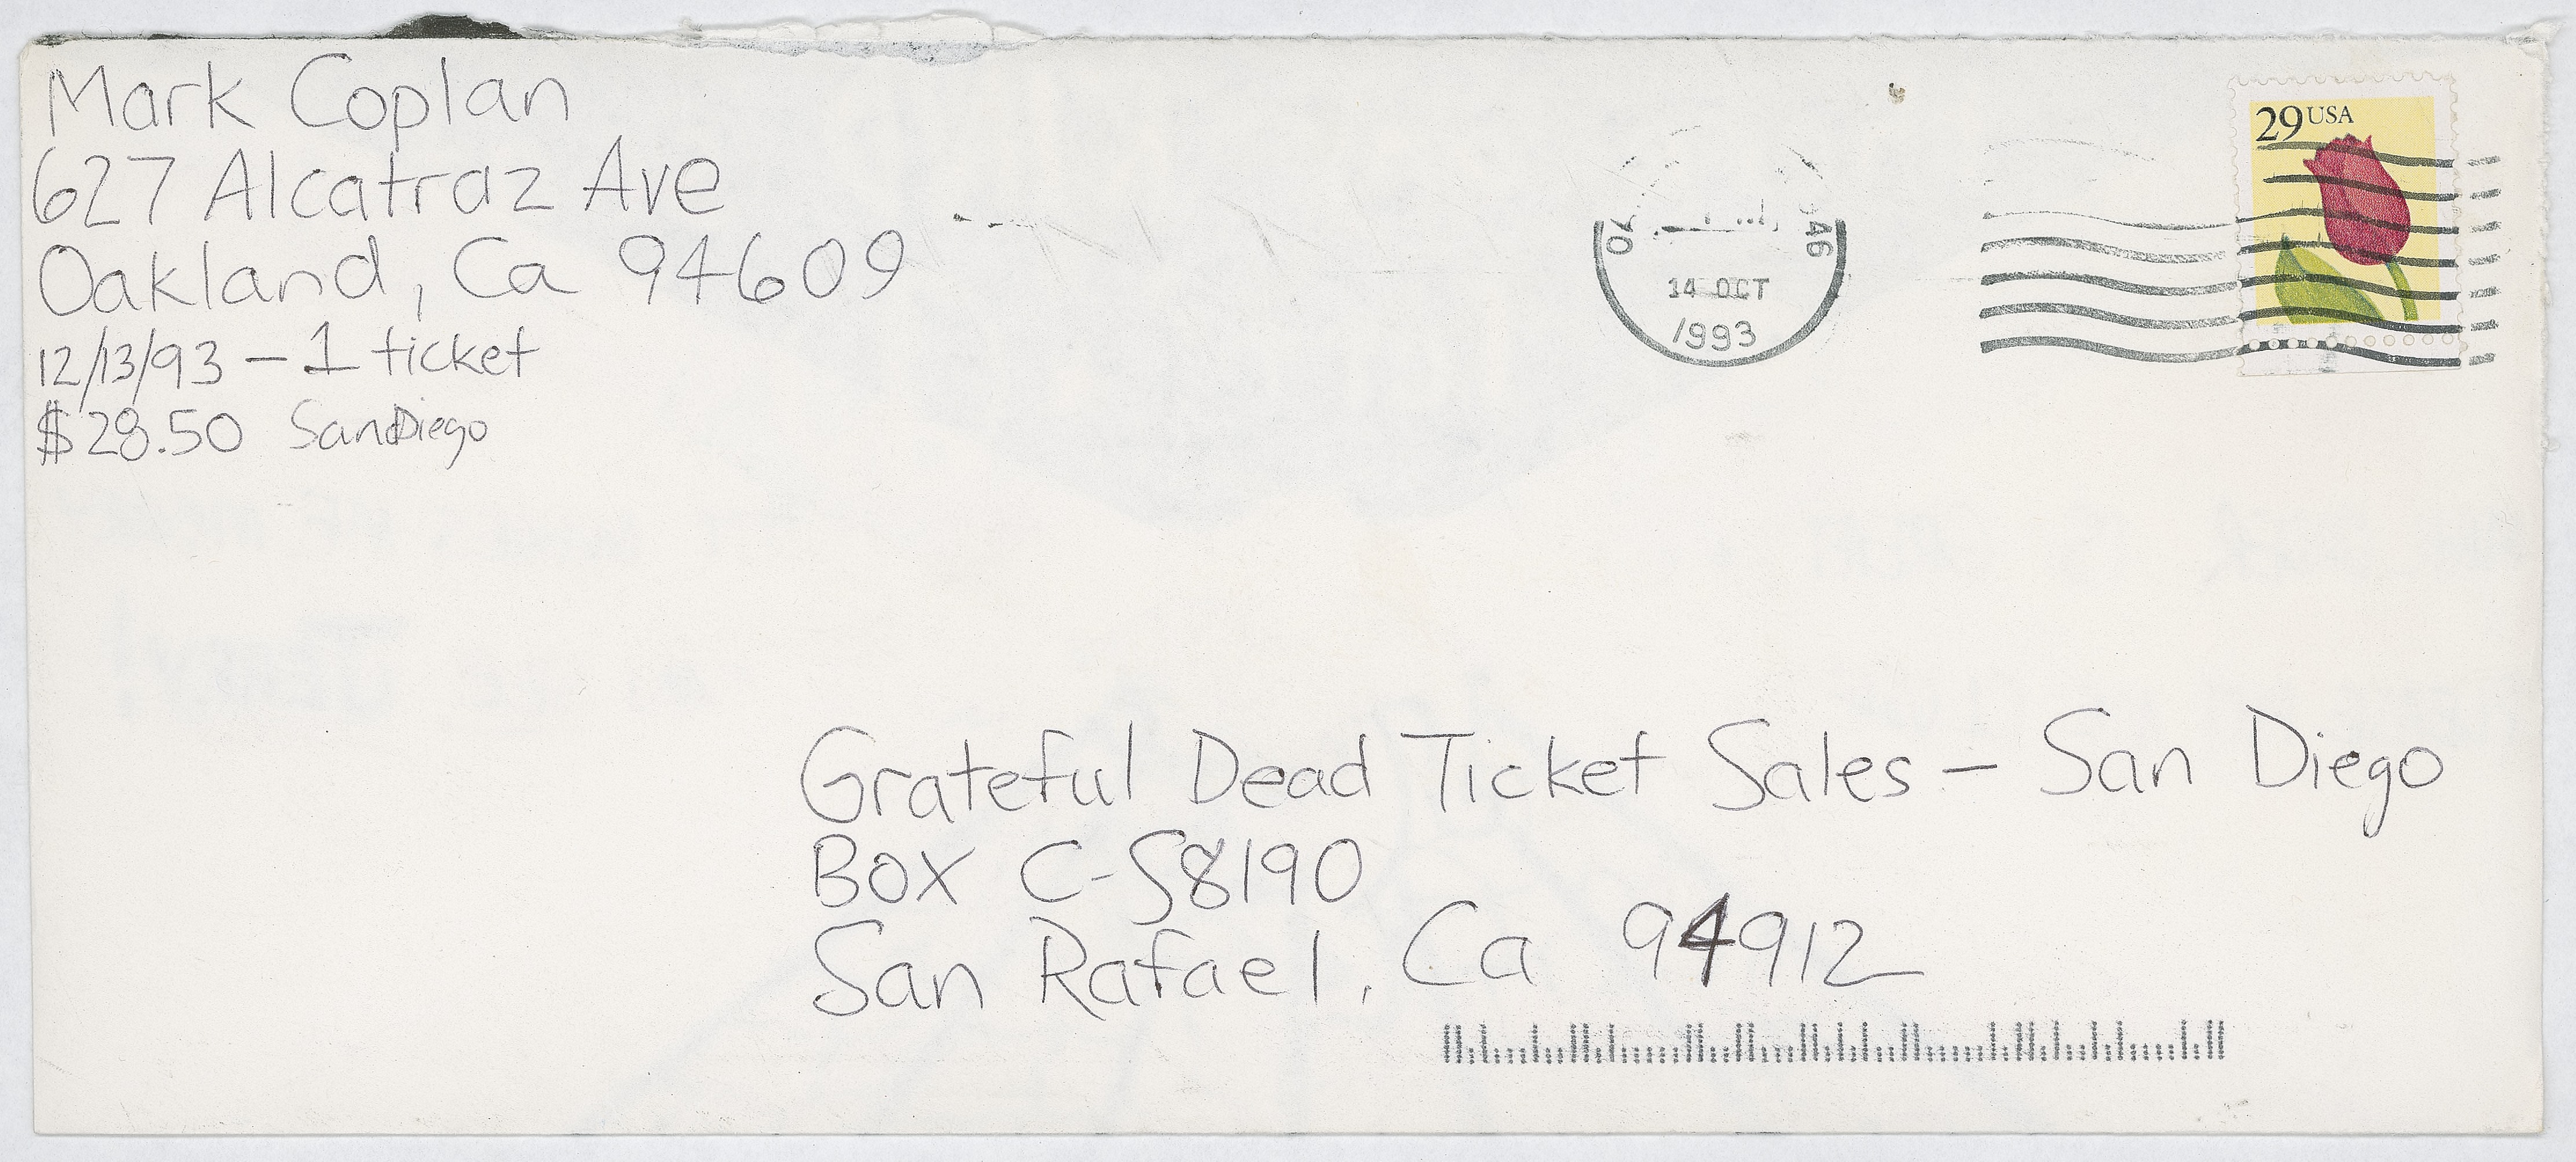 Mark Coplan
627 Alcatraz Ave
Oakland, Ca 94609
12/13/93 - 1 ticket
$28.50 San Diego
70 946
14 OCT
1993
29 USA
Grateful Dead Ticket Sales - San Diego
BOX C-S8190
San Rafael, Ca 94912